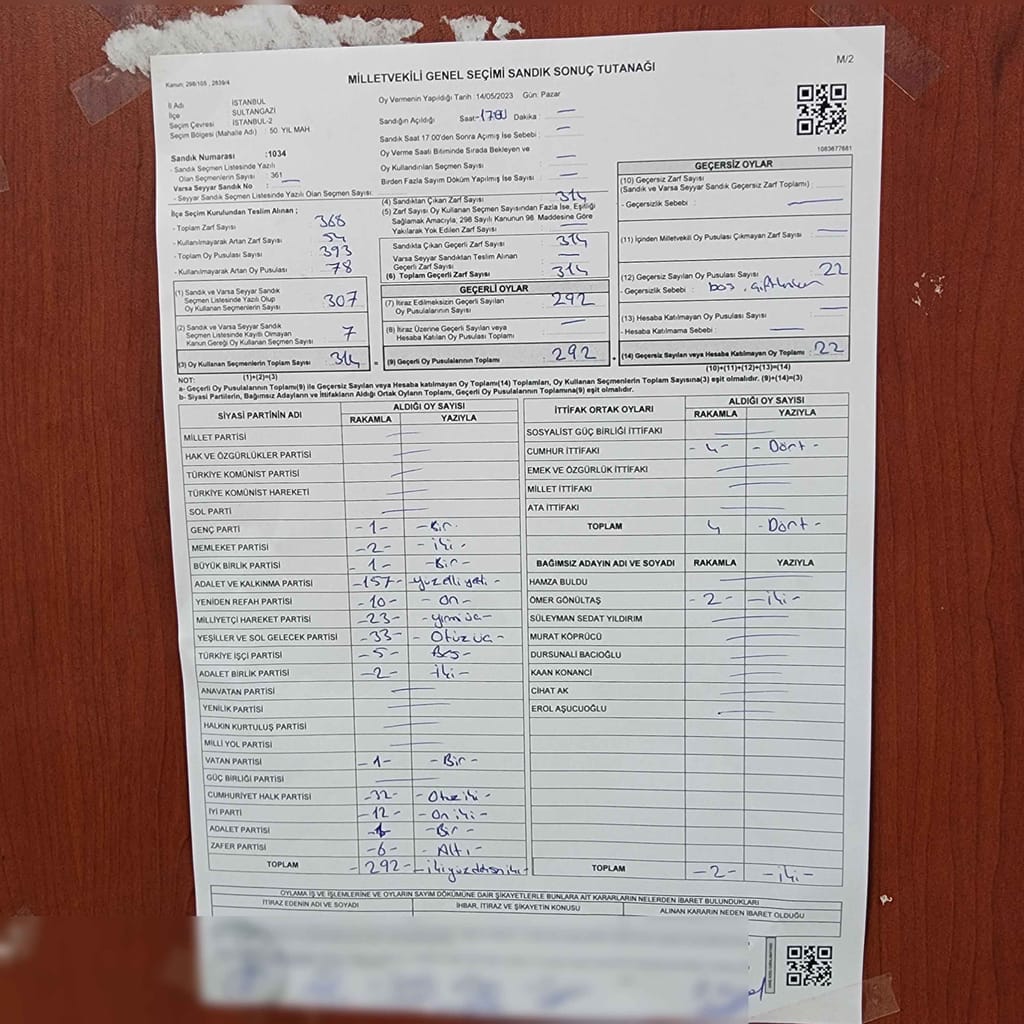 M/2
Kanun: 298/105 , 2839/4
MİLLETVEKİLİ GENEL SEÇİMİ SANDIK SONUÇ TUTANAĞI
İl Adı : İSTANBUL
İlçe : SULTANGAZİ
Seçim Çevresi : İSTANBUL-2
Seçim Bölgesi (Mahalle Adı) : 50. YIL MAH.
Oy Vermenin Yapıldığı Tarih :14/05/2023 Gün: Pazar
Sandığın Açıldığı Saat:-1700 Dakika : —
Sandık Saat 17.00'den Sonra Açılmış İse Sebebi : —
Oy Verme Saati Bitiminde Sırada Bekleyen ve
Oy Kullandırılan Seçmen Sayısı : —
Birden Fazla Sayım Döküm Yapılmış İse Sayısı : —
1083677681
Sandık Numarası :1034
- Sandık Seçmen Listesinde Yazılı
Olan Seçmenlerin Sayısı : 361
Varsa Seyyar Sandık No : —
- Seyyar Sandık Seçmen Listesinde Yazılı Olan Seçmen Sayısı:
İlçe Seçim Kurulundan Teslim Alınan ;
- Toplam Zarf Sayısı : 368
- Kullanılmayarak Artan Zarf Sayısı : 54
- Toplam Oy Pusulası Sayısı : 393
- Kullanılmayarak Artan Oy Pusulası : 78
(1) Sandık ve Varsa Seyyar Sandık
Seçmen Listesinde Yazılı Olup
Oy Kullanan Seçmenlerin Sayısı : 307
(2) Sandık ve Varsa Seyyar Sandık
Seçmen Listesinde Kayıtlı Olmayan
Kanun Gereği Oy Kullanan Seçmen Sayısı : 7
(3) Oy Kullanan Seçmenlerin Toplam Sayısı : 314
(1)+(2)=(3)
(4) Sandıktan Çıkan Zarf Sayısı : 314
(5) Zarf Sayısı Oy Kullanan Seçmen Sayısından Fazla İse, Eşitliği
Sağlamak Amacıyla; 298 Sayılı Kanunun 98. Maddesine Göre
Yakılarak Yok Edilen Zarf Sayısı : —
Sandıkta Çıkan Geçerli Zarf Sayısı : 314
Varsa Seyyar Sandıktan Teslim Alınan
Geçerli Zarf Sayısı : —
(6) Toplam Geçerli Zarf Sayısı : 314
GEÇERLİ OYLAR
(7) İtiraz Edilmeksizin Geçerli Sayılan
Oy Pusulalarının Sayısı : 292
(8) İtiraz Üzerine Geçerli Sayılan veya
Hesaba Katılan Oy Pusulası Toplamı : —
= (9) Geçerli Oy Pusulalarının Toplamı : 292
GEÇERSİZ OYLAR
(10) Geçersiz Zarf Sayısı
(Sandık ve Varsa Seyyar Sandık Geçersiz Zarf Toplamı) :
- Geçersizlik Sebebi : —
(11) İçinden Milletvekili Oy Pusulası Çıkmayan Zarf Sayısı : —
(12) Geçersiz Sayılan Oy Pusulası Sayısı : 22
- Geçersizlik Sebebi : boş,
(13) Hesaba Katılmayan Oy Pusulası Sayısı : —
- Hesaba Katılmama Sebebi : —
(14) Geçersiz Sayılan veya Hesaba Katılmayan Oy Toplamı : 22
(10)+(11)+(12)+(13)=(14)
NOT:
a- Geçerli Oy Pusulaları Toplamı(9) ile Geçersiz Sayılan veya Hesaba katılmayan Oy Toplamı(14) Toplamları, Oy Kullanan Seçmenlerin Toplam Sayısına(3) eşit olmalıdır. (9)+(14)=(3)
b- Siyasi Partilerin, Bağımsız Adayların ve İttifakların Aldığı Ortak Oyların Toplamı, Geçerli Oy Pusulalarının Toplamına(9) eşit olmalıdır.
SİYASİ PARTİNİN ADI ALDIĞI OY SAYISI
RAKAMLA YAZIYLA
MİLLET PARTİSİ —
HAK VE ÖZGÜRLÜKLER PARTİSİ —
TÜRKİYE KOMÜNİST PARTİSİ —
TÜRKİYE KOMÜNİST HAREKETİ —
SOL PARTİ —
GENÇ PARTİ -1- -Bir-
MEMLEKET PARTİSİ -2- -iki-
BÜYÜK BİRLİK PARTİSİ -1- -Bir-
ADALET VE KALKINMA PARTİSİ -157- -yüzelliyedi-
YENİDEN REFAH PARTİSİ -10- -On-
MİLLİYETÇİ HAREKET PARTİSİ -23- -yirmiüç-
YEŞİLLER VE SOL GELECEK PARTİSİ -33- -Otuzüç-
TÜRKİYE İŞÇİ PARTİSİ -5- Beş-
ADALET BİRLİK PARTİSİ -2- -İki-
ANAVATAN PARTİSİ —
YENİLİK PARTİSİ —
HALKIN KURTULUŞ PARTİSİ —
MİLLİ YOL PARTİSİ —
VATAN PARTİSİ -1- -Bir-
GÜÇ BİRLİĞİ PARTİSİ —
CUMHURİYET HALK PARTİSİ -32- -Otuziki-
İYİ PARTİ -12- -On iki-
ADALET PARTİSİ -1- -Bir-
ZAFER PARTİSİ -6- -Altı-
TOPLAM -292- -ikiyüzdoksaniki-
İTTİFAK ORTAK OYLARI ALDIĞI OY SAYISI
RAKAMLA YAZIYLA
SOSYALİST GÜÇ BİRLİĞİ İTTİFAKI —
CUMHUR İTTİFAKI -4- -Dört-
EMEK VE ÖZGÜRLÜK İTTİFAKI —
MİLLET İTTİFAKI —
ATA İTTİFAKI —
TOPLAM 4 -Dört-
BAĞIMSIZ ADAYIN ADI VE SOYADI RAKAMLA YAZIYLA
HAMZA BULDU —
ÖMER GÖNÜLTAŞ -2- -iki-
SÜLEYMAN SEDAT YILDIRIM —
MURAT KÖPRÜCÜ —
DURSUNALİ BACIOĞLU —
KAAN KONANCİ —
CİHAT AK —
EROL AŞUCUOĞLU —
TOPLAM -2- -iki-
OYLAMA İŞ VE İŞLEMLERİNE VE OYLARIN SAYIM DÖKÜMÜNE DAİR ŞİKAYETLERLE BUNLARA AİT KARARLARIN NELERDEN İBARET BULUNDUKLARI
İTİRAZ EDENİN ADI VE SOYADI İHBAR, İTİRAZ VE ŞİKAYETİN KONUSU ALINAN KARARIN NEDEN İBARET OLDUĞU